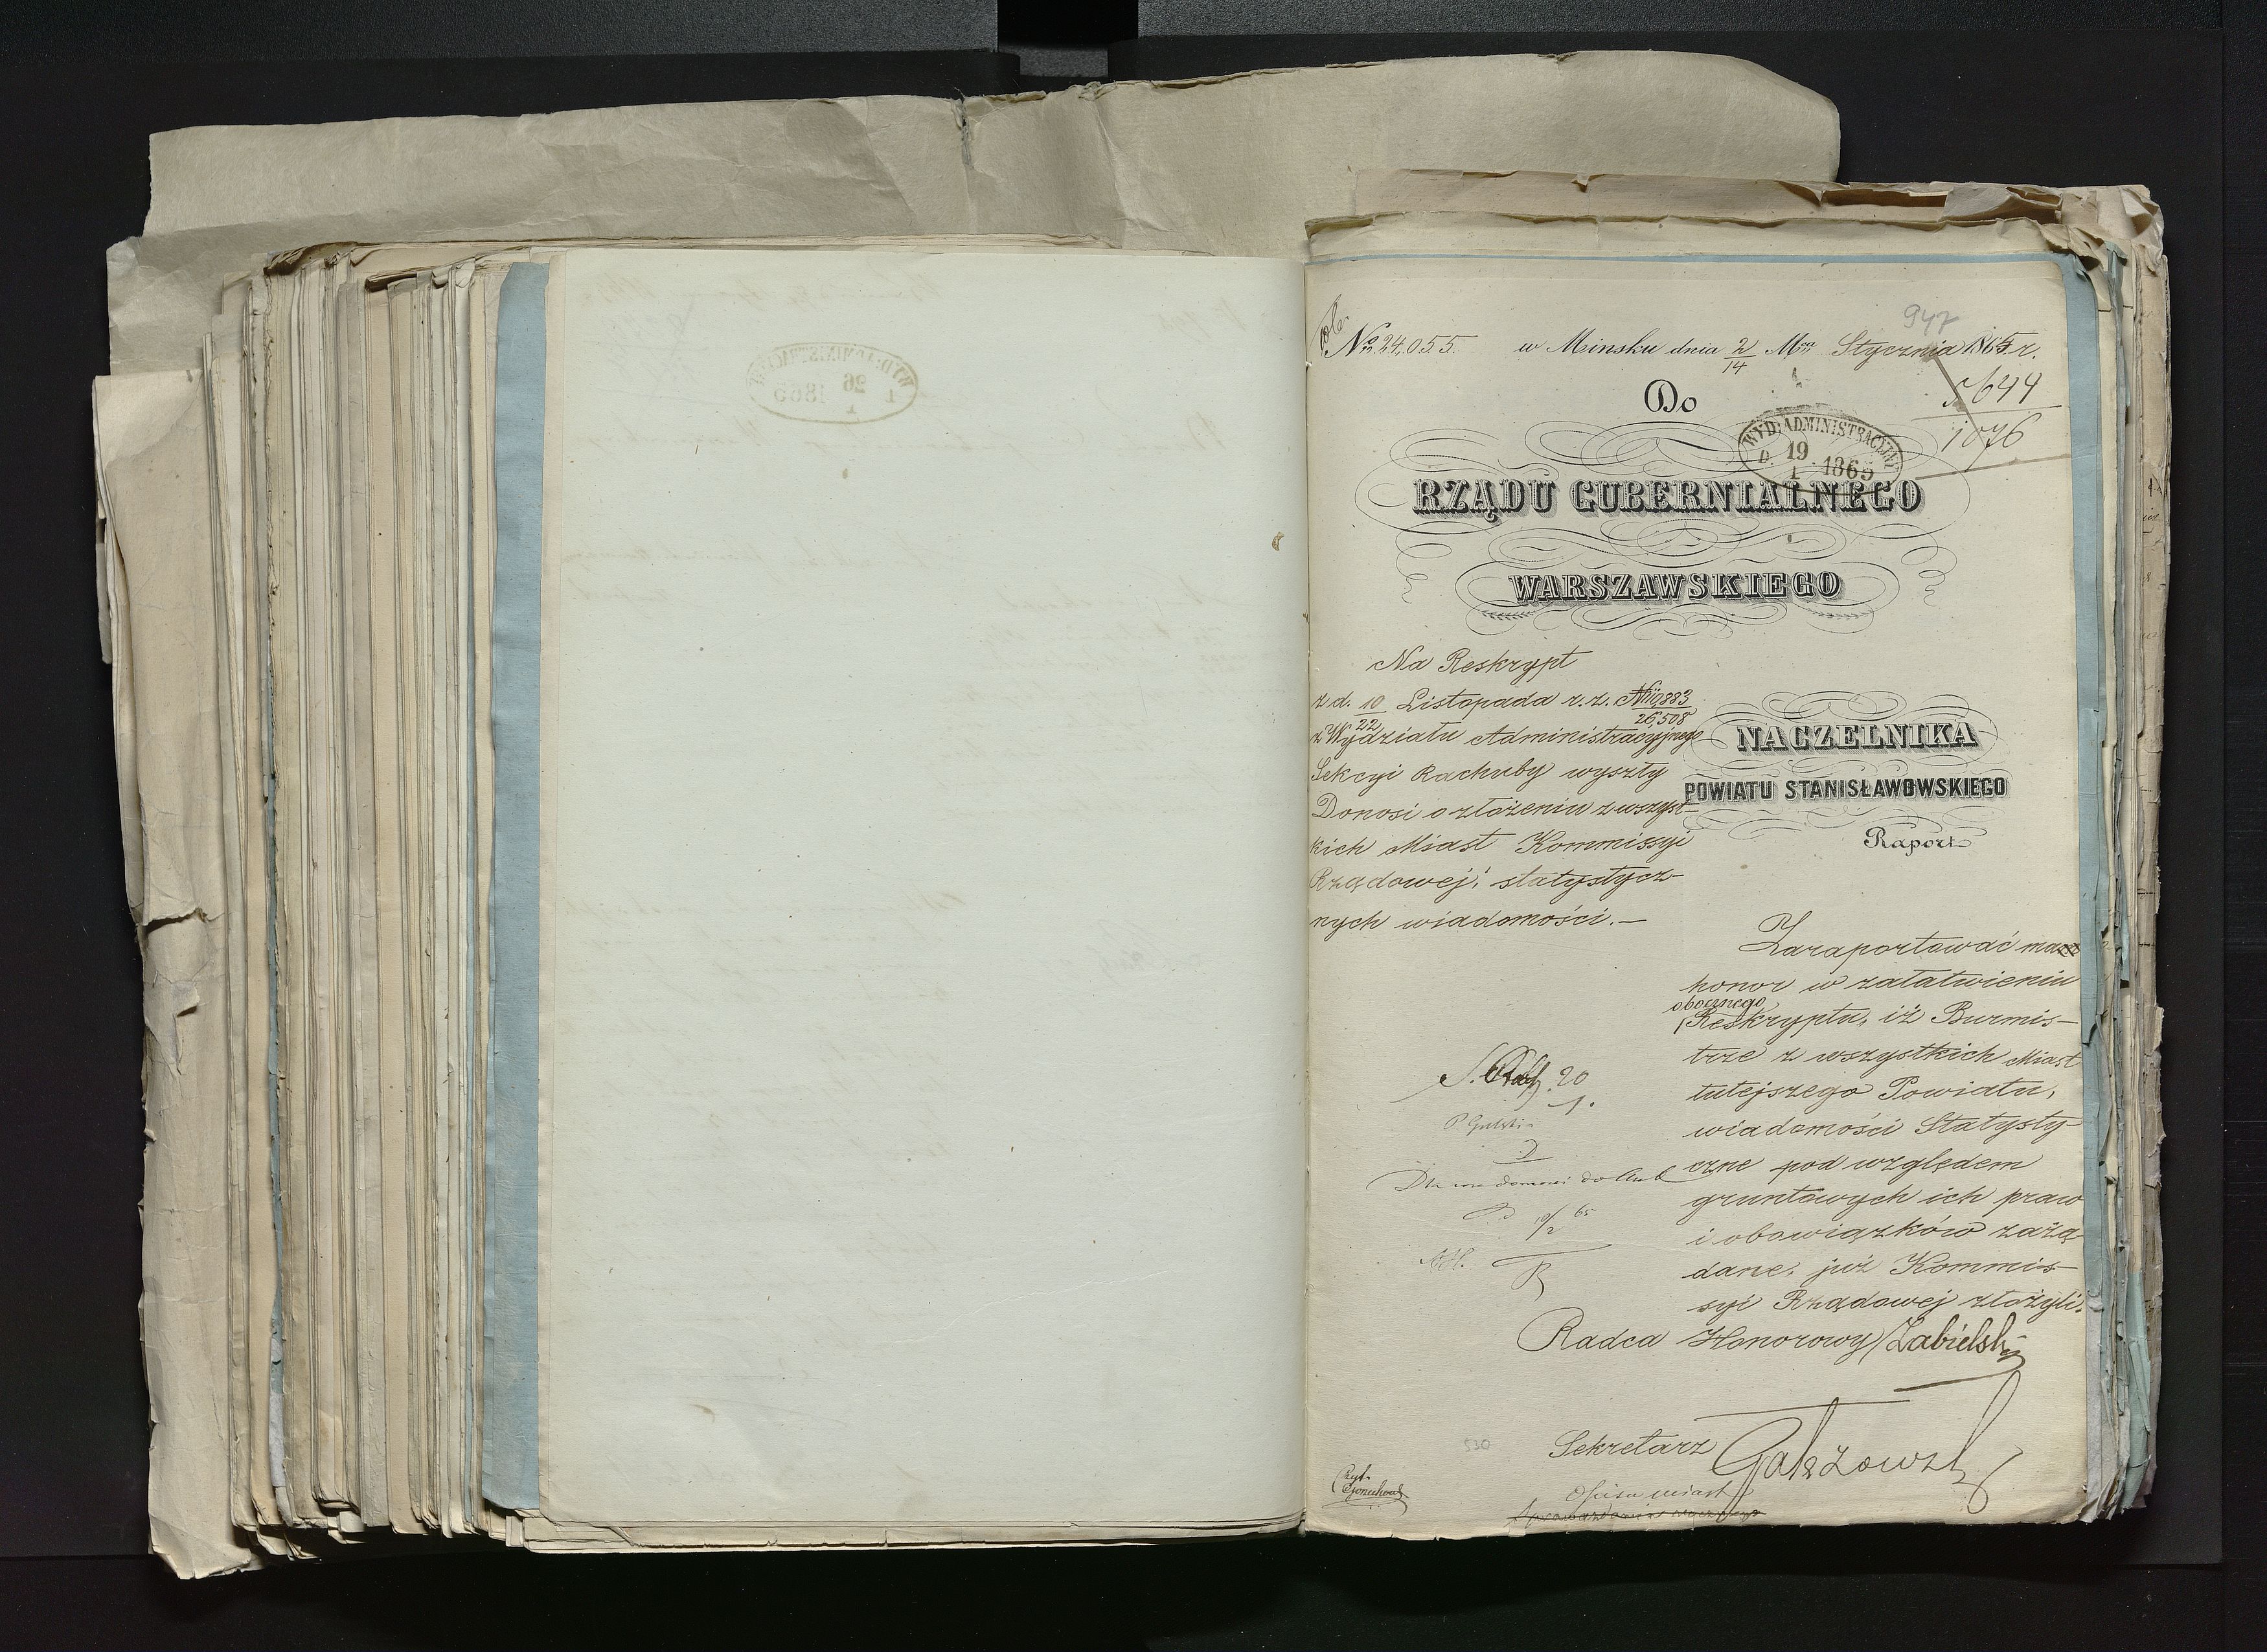 947
№ 24,055. w Minsku dnia 2/14 Mca Stycznia 1865 r.
5644
1076
Do
WYD: ADMINISTRACYJNY
D. 19
1 1865
RZĄDU GUBERNIALNEGO
WARSZAWSKIEGO
Na Reskrypt
z d. 10/22 Listopada r. z.
26,508
z Wydziału Administracyjnego
Sekcyi Rachuby wyszły
Donosi o złożeniu z wszyst-
kich Miast Kommissyi
Rządowej statystycz-
nych wiadomości.—
NACZELNIKA
POWIATU STANISŁAWOWSKIEGO
Raport
Zaraportować mam
honor w załatwieniu
obocznego
Reskryptu, iż Burmis-
trze z wszystkich Miast
tutejszego Powiatu,
wiadomości Statysty-
czne pod względem
gruntowych ich praw
i obowiązków zażą-
dane, już Kommis-
syi Rządowej złożyli.
20
1.
Dla wiadomości do Akt
10/2 65
Radca Honorowy Zabielski
Sekretarz
530
Opisu miast